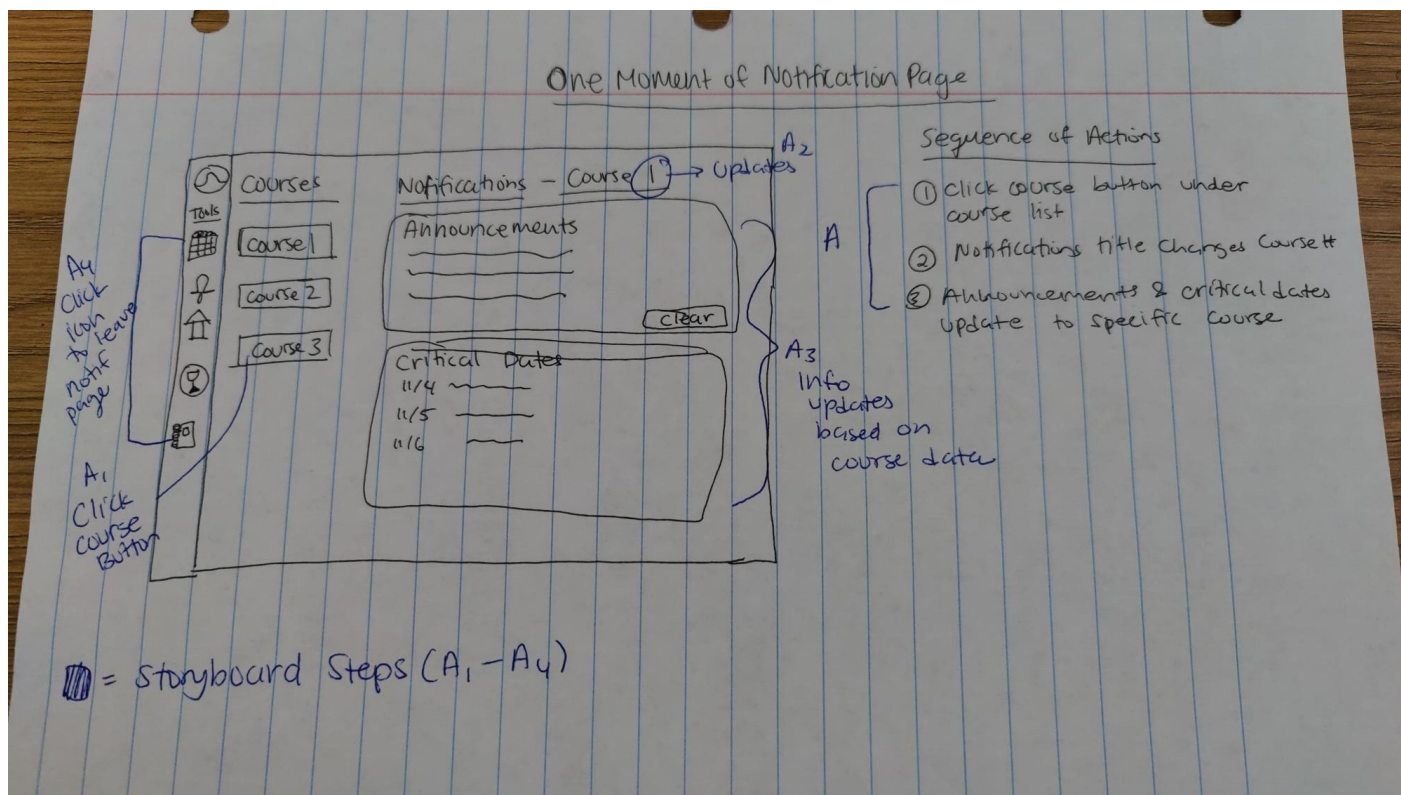 One Moment of Notification Page
Tools
Courses
Course 1
Course 2
Course 3
Notifications - Course 1
Announcements
Clear
Critical Dates
11/4
11/5
11/6
A2
→ updates
A3
Info
updates
based on
course data
A4
Click
icon
to leave
notif
page
A1
Click
course
Button
Sequence of Actions
A
① Click course button under
course list
② Notifications title changes Course#
③ Announcements & critical dates
update to specific course
= Storyboard Steps (A1 - A4)